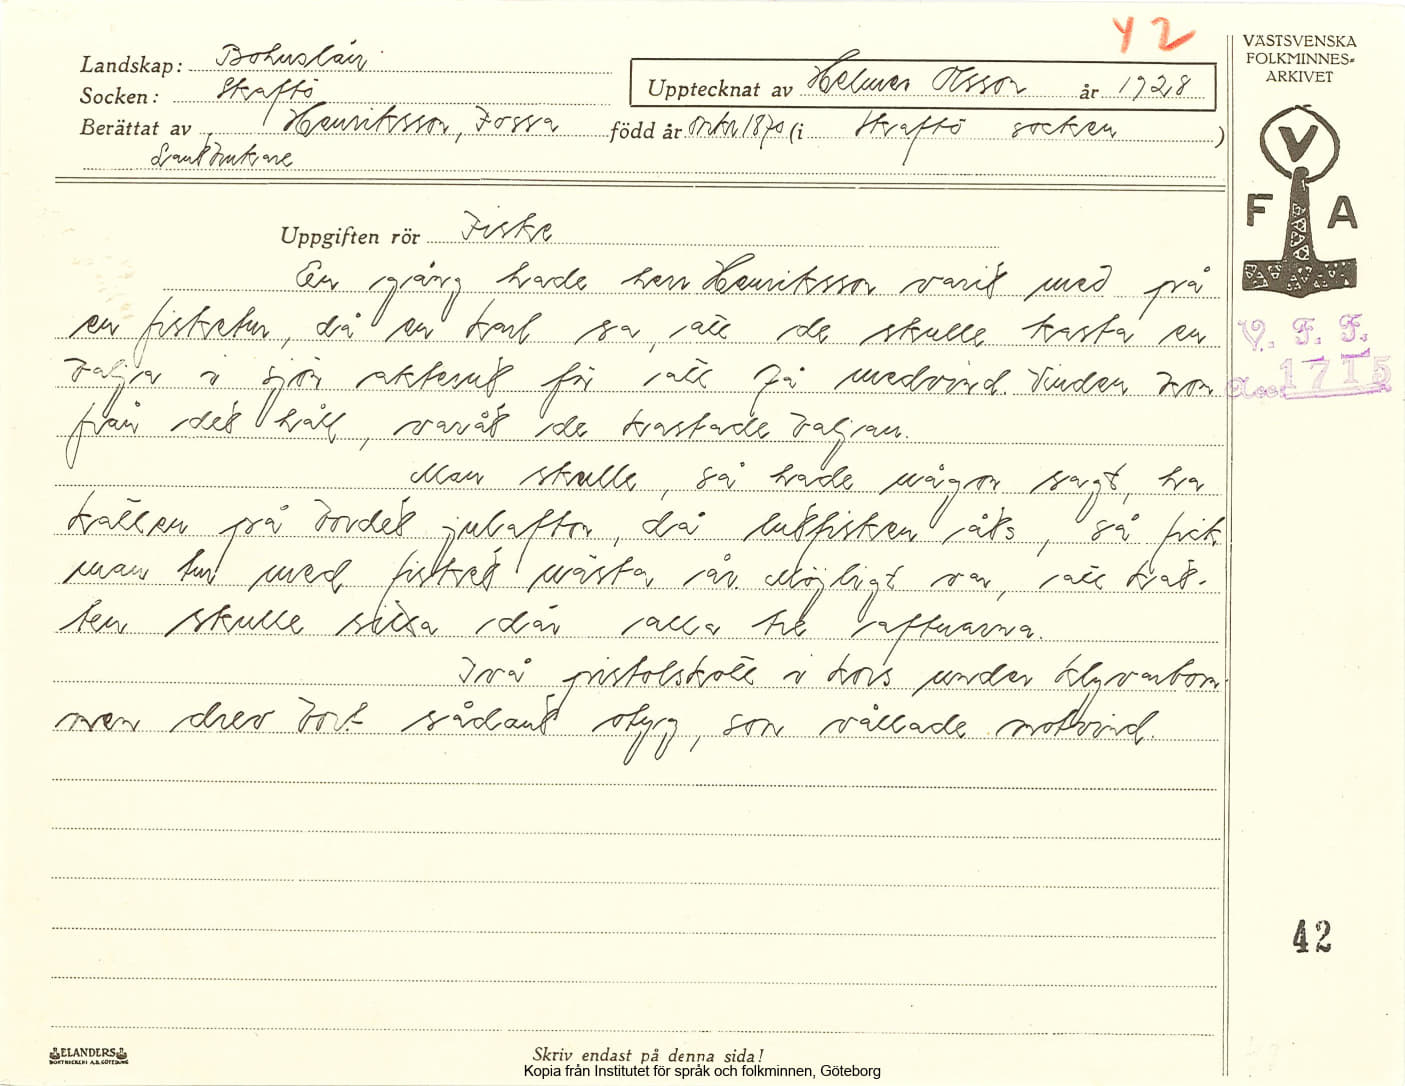 42
VÄSTSVENSKA
FOLKMINNES-
ARKIVET
Landskap: Bohuslän
Socken: Skaftö
Upptecknat av Helmer Olsson år 1928
Berättat av Henriksson, Fossa född år omkr 1870 (i Skaftö socken)
Lantbrukare
V
F A
Uppgiften rör Fiske
En gång hade herr Henriksson varit med på
en fisketur, då en karl sa, att de skulle kasta en
balja i sjön akterut för att få medvind. Vinden kom
från det håll, varåt de kastade baljan.
Man skulle, så hade någon sagt, ha
katten på bordet julafton, då lutfisken åts, så fick
man tur med fisket nästa år. Möjligt var, att kat-
ten skulle sitta där alla tre aftnarna.
Två pistolskott i kors under klyvarbom-
men drev bort sådant otyg, som vållade motvind.
V. F. F.
Acc. 1715
42
ELANDERS
BOKTRYCKERI A.B. GÖTEBORG
Skriv endast på denna sida!
Kopia från Institutet för språk och folkminnen, Göteborg